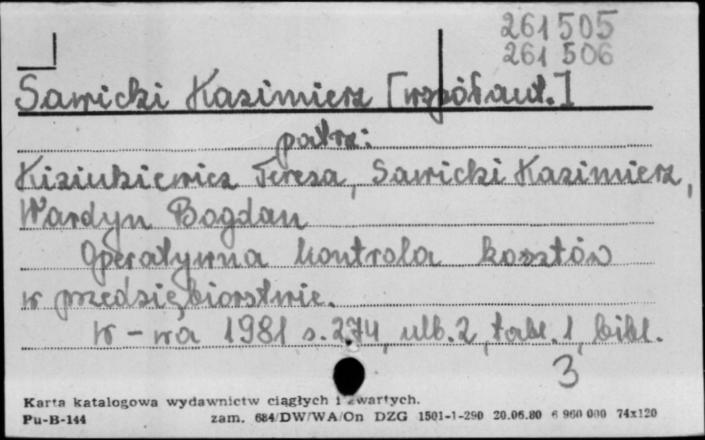 261505
261506
Sawicki Kazimierz [współaut.]
patrz:
Kiziukiewicz Teresa, Sawicki Kazimierz,
Wardyn Bogdan
Operatywna kontrola kosztów
w przedsiębiorstwie.
W-wa 1981 s. 274, nlb. 2, tabl. 1, bibl.
3
Karta katalogowa wydawnictw ciągłych i zwartych.
Pu-B-144 zam. 684/DW/WA/On DZG 1501-1-290 20.06.80 6 960 000 74x120